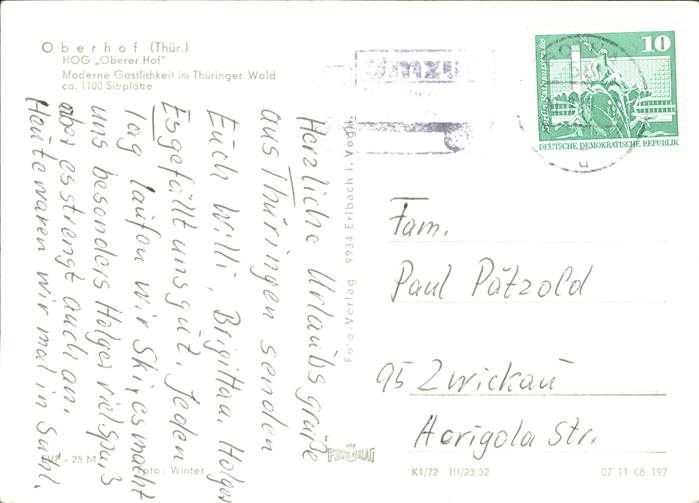 Oberhof (Thür.)
HOG „Oberer Hof"
Moderne Gastlichkeit im Thüringer Wald
ca. 1100 Sitzplätze
Herzliche Urlaubsgrüße
aus Thüringen senden
Euch Willi, Brigitta u. Holger
Es gefällt uns gut. Jeden
Tag laufen wir Ski, es macht
uns besonders Holger viel Spaß
aber es strengt auch an.
Heute waren wir mal in Suhl.
EVP - 25 M
Foto: Winter
Foto-Verlag 9934 Erlbach i. Vogtl.
FOTO VERLAG
10
DEUTSCHE DEMOKRATISCHE REPUBLIK
Fam.
Paul Pätzold
95 Zwickau
Str.
K1/72 III/23/32
07 11 08 197